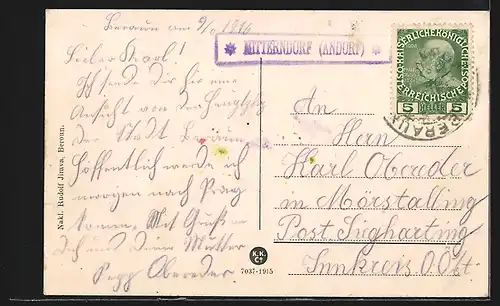 Beraun am 9/6 1916
Lieber Karl!
Ich sende dir hir eine
Ansicht von der
der Stadt Beraun
Höffentlich werde ich
morgen nach Prag
kommen. Mit Gruß an
dich und dein Mutter
Sepp Obereder
✱ MITTERNDORF (ANDORF) ✱
KAISERLICHEKÖNIGLICHE
ÖSTERREICHISCHE POST
5 HELLER 5
BERAUN
An
Herrn
Karl Obereder
in Mörstalling
Post Sigharting
Innkreis O.Öst.
Nakl. Rudolf Jirava, Beroun.
K.K.
C†
7037-1915